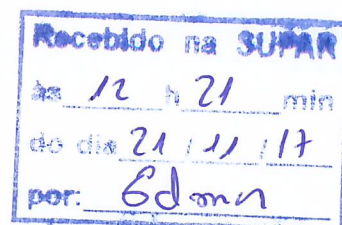 Recebido na SUPAR
às 12 h 21 min
do dia 21 / 11 / 17
por: